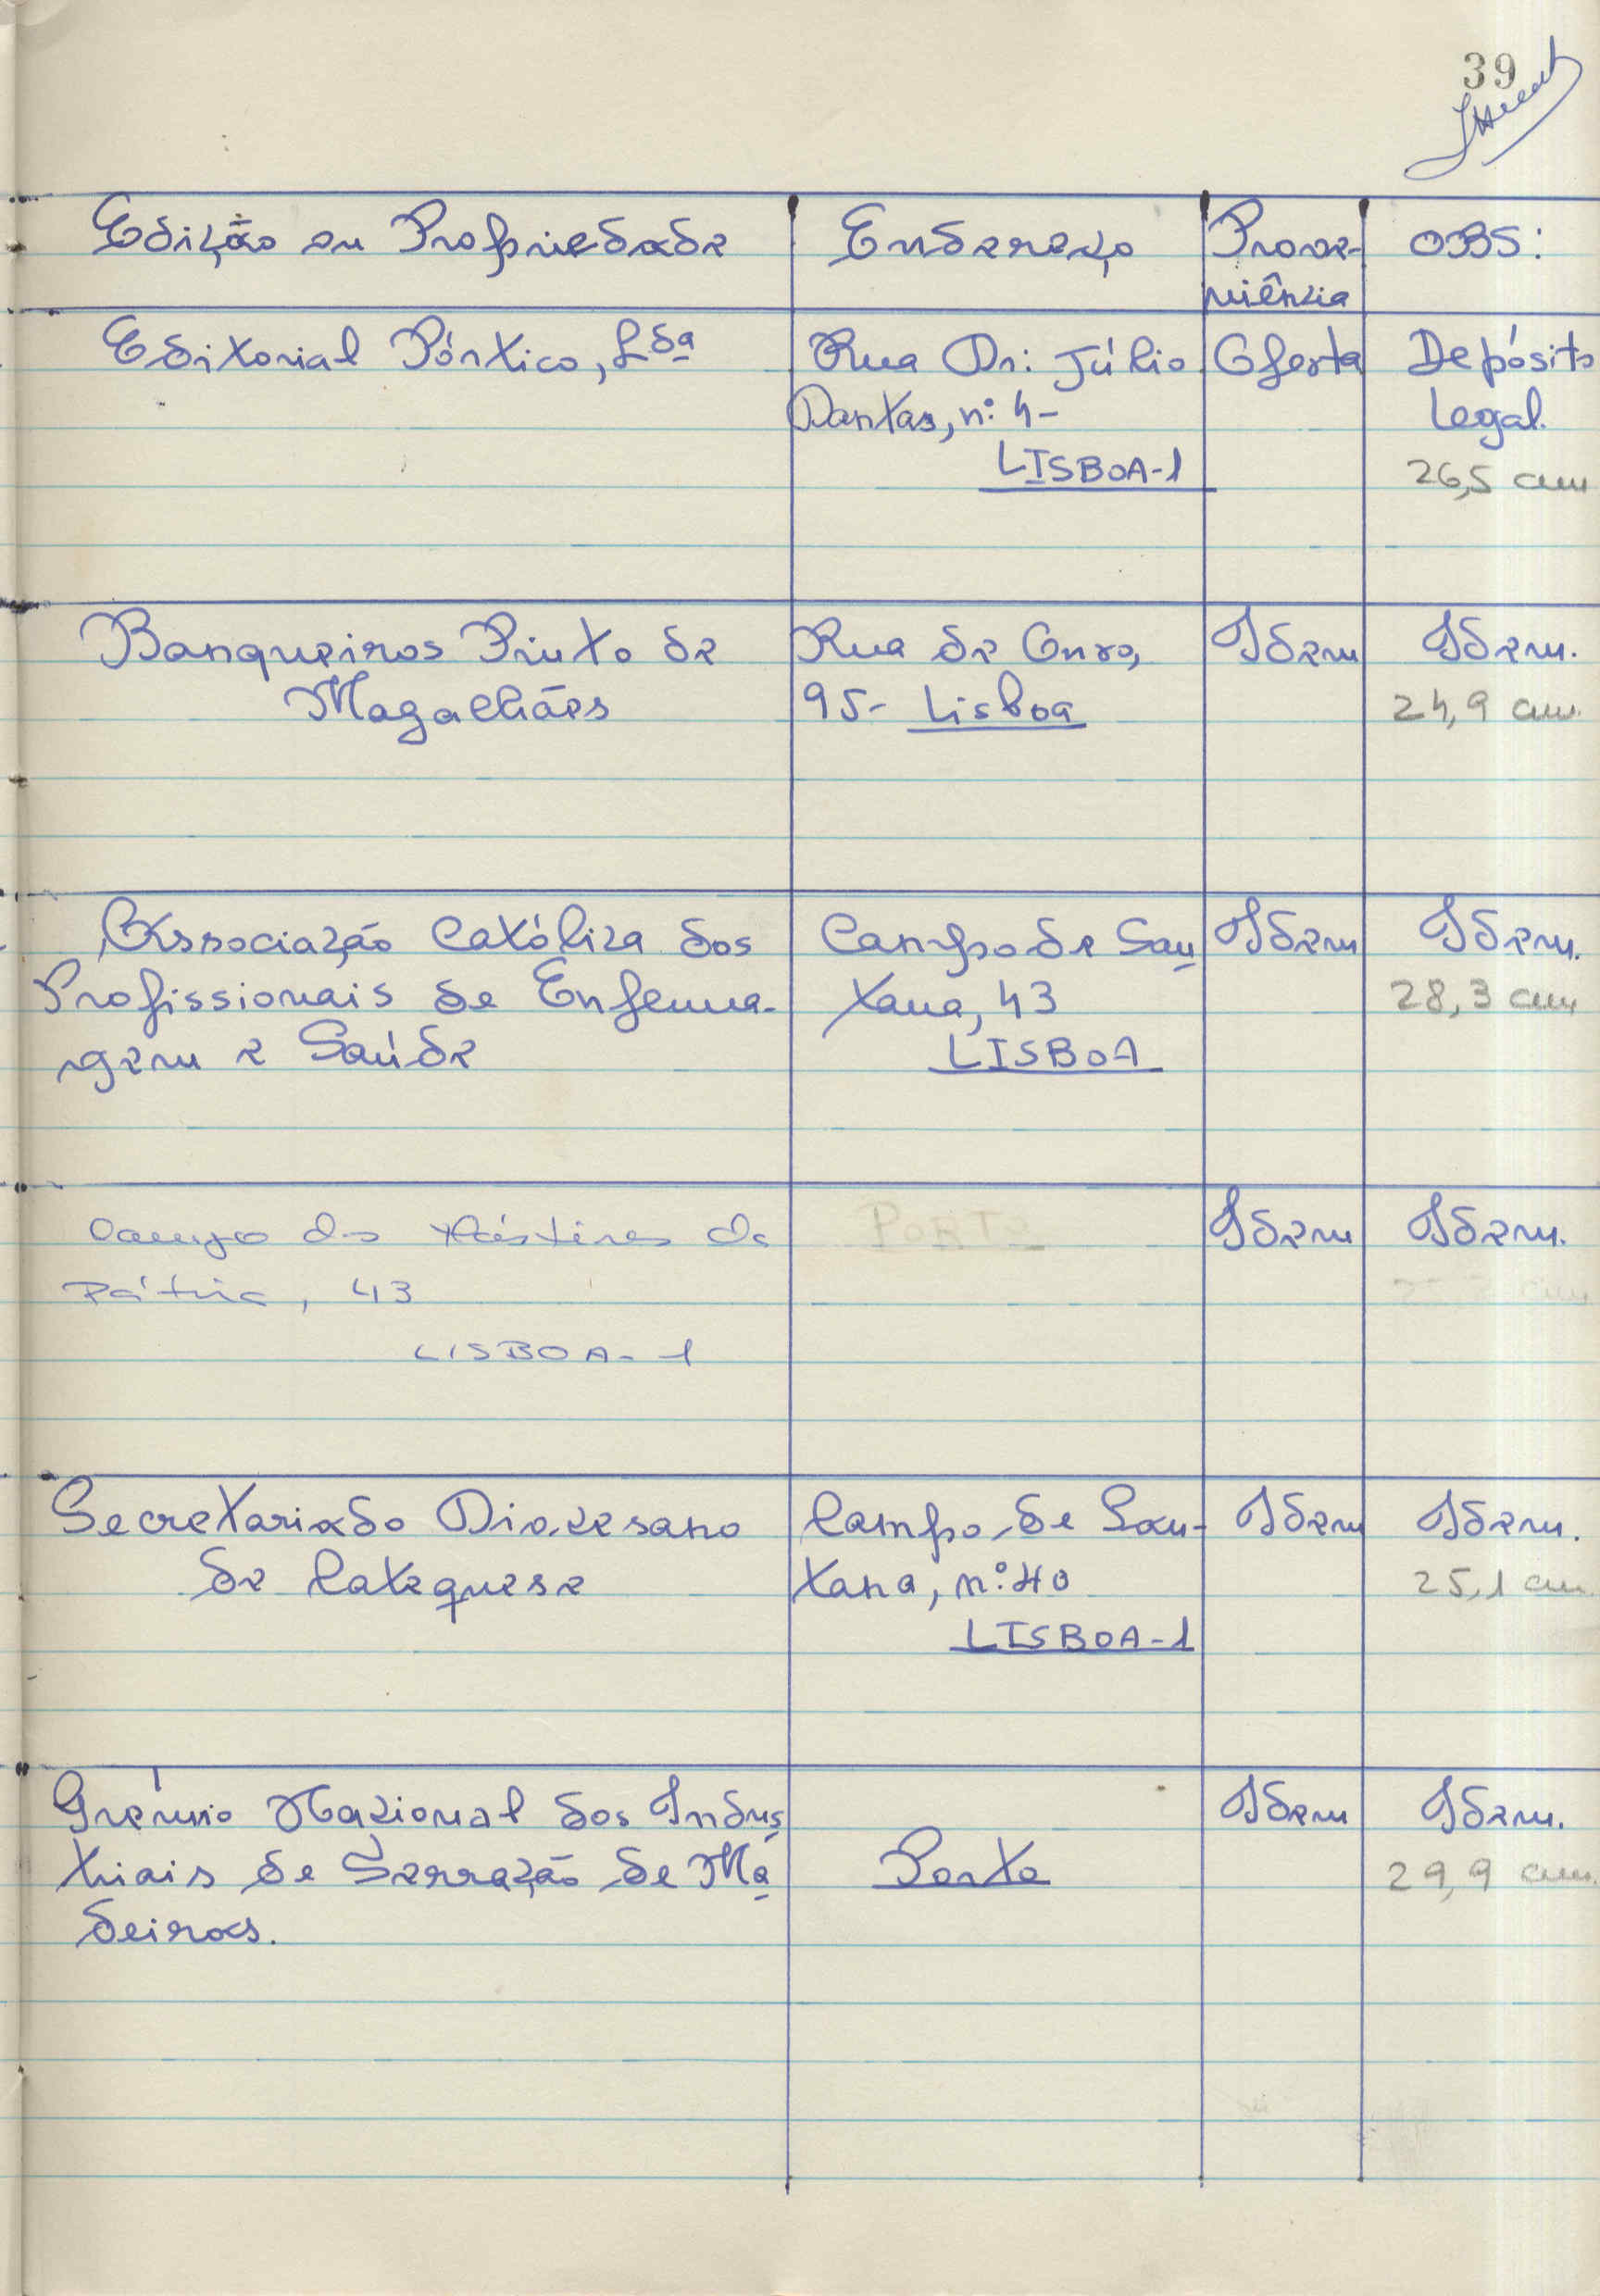 39
Edição ou Propriedade Endereço Prove- OBS:
niência
Editorial Pórtico, Ldª Rua Dr: Júlio Oferta Depósito
Dantas, nº 4- Legal.
LISBOA-1 26,5 cm
Banqueiros Pinto de Rua de Ouro, Idem Idem.
Magalhães 95- Lisboa 24,9 cm.
Associação Católica dos Campo de San Idem Idem.
Profissionais de Enferma- tana, 43 28,3 cm
gem e Saúde LISBOA
Campo dos Mártires da PORTO Idem Idem.
Pátria, 43
LISBOA-1
Secretariado Diocesano Campo de San- Idem Idem.
de Catequese tana, nº 40 25,1 cm
LISBOA-1
Grémio Nacional dos Indus Idem Idem.
triais de Serração de Ma Porto 29,9 cm.
deiras.